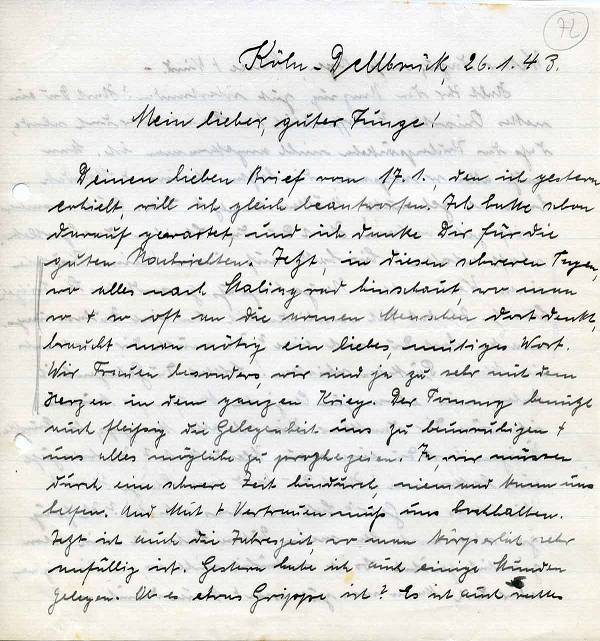 72
Köln-Dellbrück, 26.1.43.
Mein lieber, guter Junge!
Deinen lieben Brief vom 17.1., den ich gestern
erhielt, will ich gleich beantworten. Ich hatte schon
darauf gewartet, und ich danke Dir für die
guten Nachrichten. Jetzt, in diesen schweren Tagen,
wo alles nach Stalingrad hinschaut, wo man
so + so oft an die armen Menschen dort denkt,
braucht man nötig ein liebes, mutiges Wort.
Wir Frauen besonders, wir sind ja zu sehr mit dem
Herzen in dem ganzen Krieg. Der Tommy benützt
auch fleißig die Gelegenheit uns zu beunruhigen +
uns alles mögliche zu prophezeien. Ja, wir müssen
durch eine schwere Zeit hindurch, niemand kann uns
helfen. Und Mut + Vertrauen muß uns hochhalten.
Jetzt ist auch die Jahreszeit, wo man körperlich sehr
anfällig ist. Gestern habe ich auch einige Stunden
gelegen. Ob es etwas Grippe ist? Es ist auch